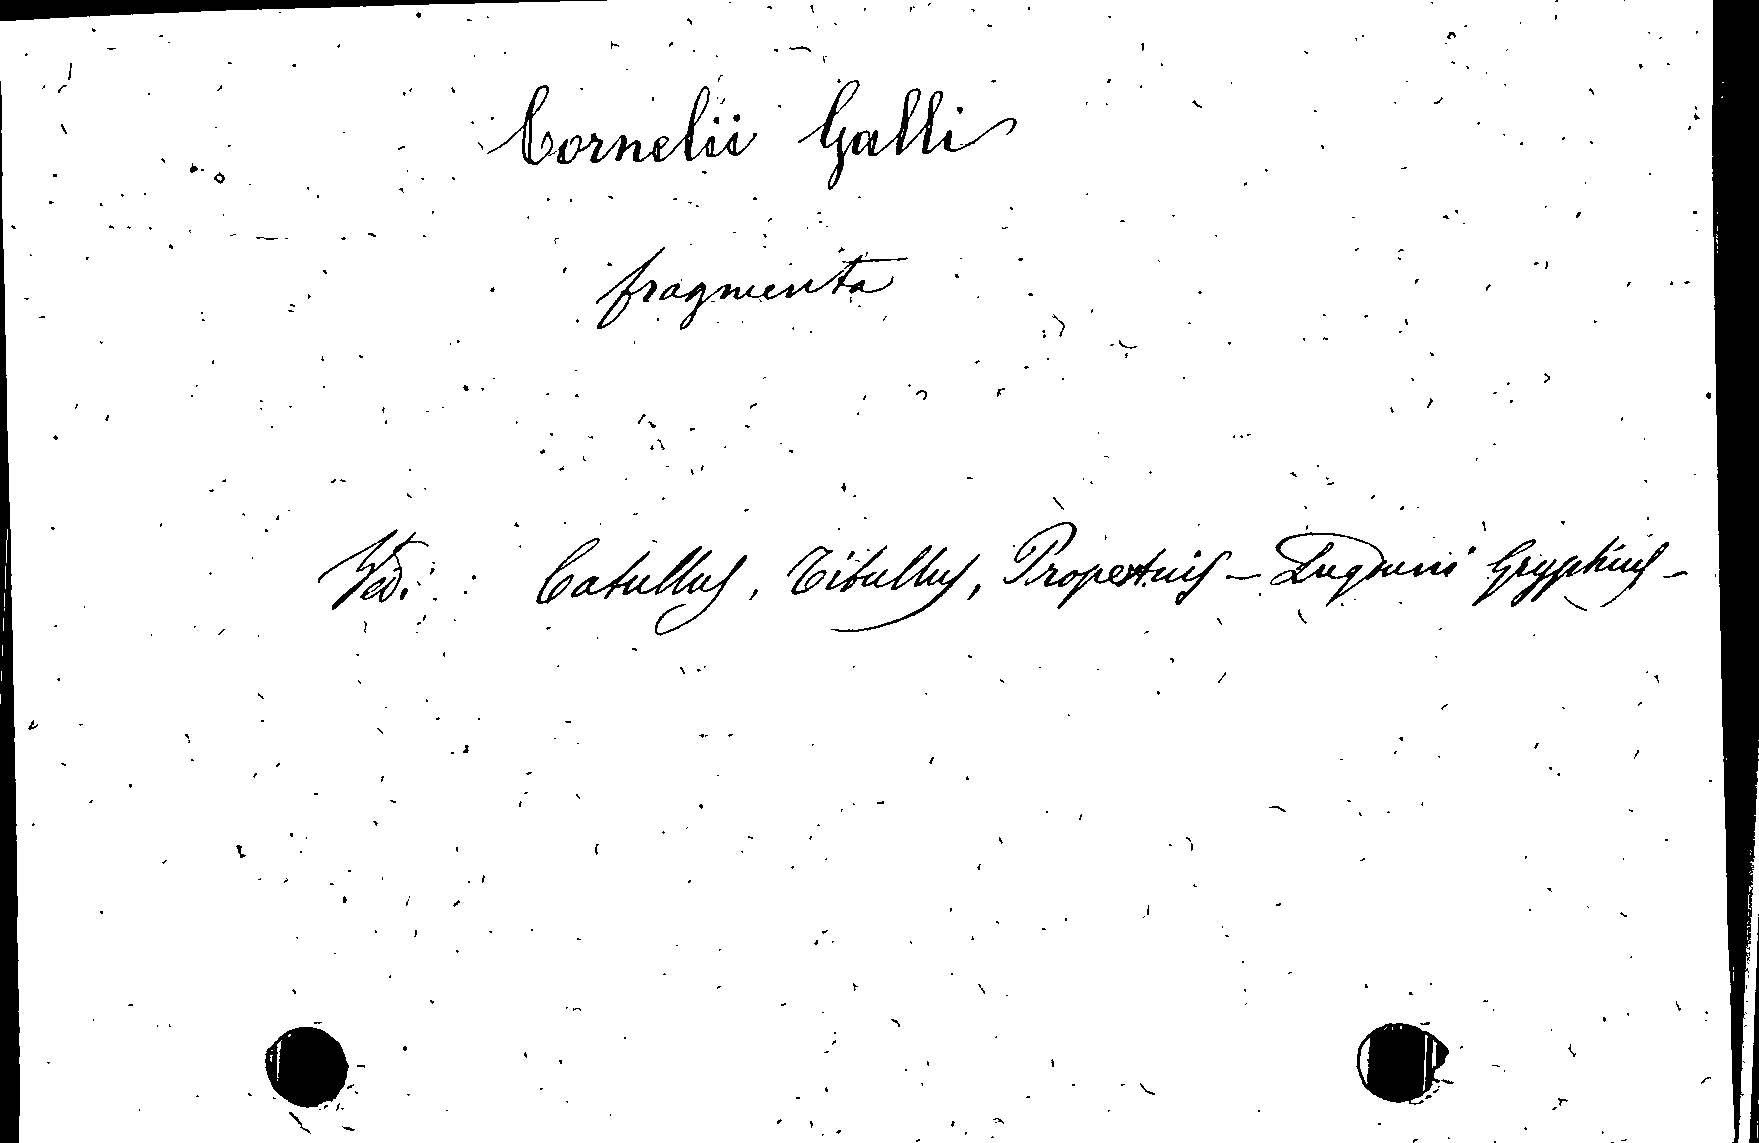 Cornelii Galli
fragmenta
Ved. : Catullus, Tibullus, Propertius – Lugduni Gryphius –